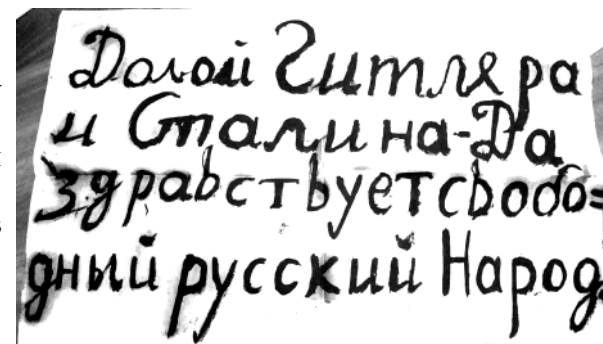 Долой Гитлера
и Сталина-Да
здравствуетсвобо=
дный русский Народ